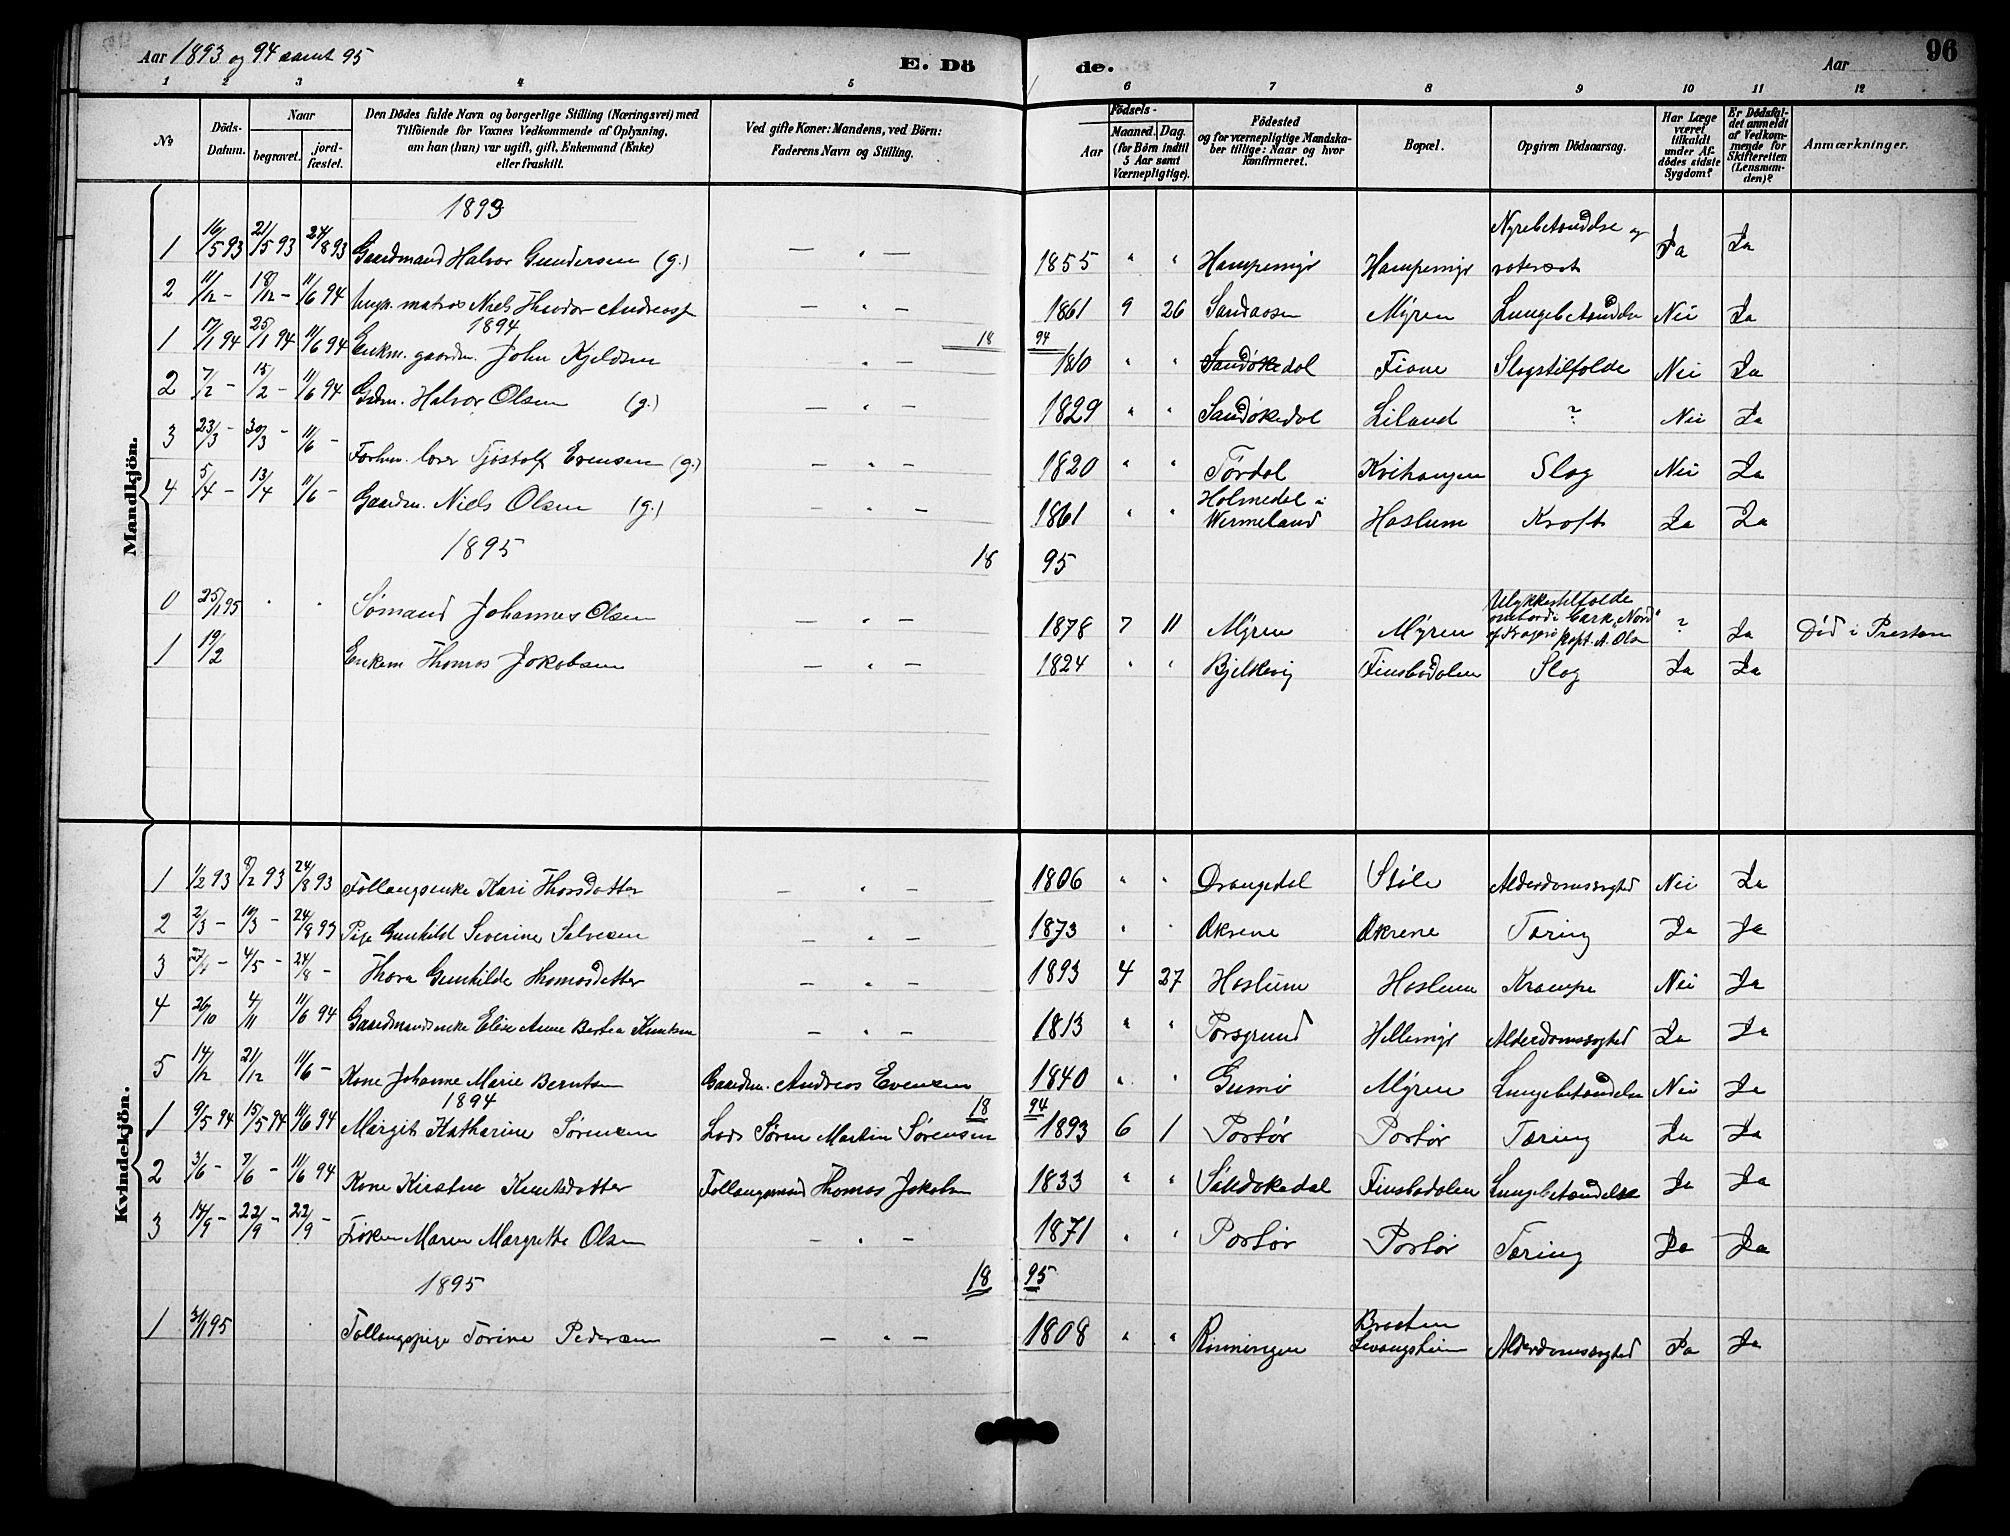 Aar 1893 og 94 samt 95
E. Dö
de.
Aar
96
1 2 3 4 5 6 7 8 9 10 11 12
No
Döds-Datum.
Naar
begravet.
jord-fæstet.
Den Dödes fulde Navn og borgerlige Stilling (Næringsvei) med
Tilföiende for Voxnes Vedkommende af Oplysning,
om han (hun) var ugift, gift, Enkemand (Enke)
eller fraskilt.
Ved gifte Koner: Mandens, ved Börn:
Faderens Navn og Stilling.
Födsels-
Aar
Maaned. Dag.
(for Börn indtil
5 Aar samt
Værnepligtige).
Födested
og for værnepligtige Mandska-
ber tillige: Naar og hvor
konfirmeret.
Bopæl.
Opgiven Dödsaarsag.
Har Læge
været
tilkaldt
under Af-
dödes sidste
Sygdom?
Er Dödsfal-
det anmeldt
af Vedkom-
mende for
Skifteretten
(Lensman-
den)?
Anmærkninger.
Mandkjön.
1893
1 16/5 93 21/5 93 24/8 93 Gaardmand Halvor Gundersen (g.) — " — 1855 " " Hampemyr Hampemyr Nyrebetændelse og Ja Ja
2 11/12 - 18/12 - 11/6 94 matros Niels Theodor Andreas 1861 9 26 Myren Lungebetændelse Nei Ja
1894
18 94
1 17/1 94 25/1 94 11/6 94 Enkm. gaardm. John Kjeldsen — " — 1810 " " Sandøkedal Fione Slagtilfælde Nei Ja
2 7/2 - 15/2 - 11/6 94 Gdm. Halvor Olsen (g.) — " — 1829 " " Sandøkedal Liland ? Nei Ja
3 23/3 - 30/3 - 11/6 - Tjøstolf Evensen (g.) — " — 1820 " " Tørdal Slag Nei Ja
4 5/4 - 13/4 11/6 - Gaardm. Niels Olsen (g.) — " — 1861 " " Holmedal i Wermeland Haslum Kræft Ja Ja
1895
18 95
0 25/1 95 " " Sømand Johannes Olsen — " — 1878 7 11 Myren Myren Ulykkestilfælde ombord i bark "Nord" af Kragerø kapt. A. Olsen ? Ja Død i Preston
1 19/2 Enkem Thomas Jakobsen — " — 1824 " " Bjelkevig Finsbødalen Slag Ja Ja
Kvindekjön.
1 1/2 93 9/2 93 24/8 93 Føllaugsenke Kari Thorsdatter — " — 1806 " " Drangedal Støle Alderdomssvaghed Nei Ja
2 2/3 - 10/3 - 24/8 93 Pige Gunhild Severine Salvesen — " — 1873 " " Økrene Økrene Tæring Ja Ja
3 27/4 - 4/5 - 24/8 - Thora Gunhilde Thomasdatter — " — 1893 4 27 Haslum Haslum Krampe Nei Ja
4 26/10 4/11 11/6 94 Gaardmandsenke Elise Anne Bertea Knutsen — " — 1813 " " Porsgrund Hellemyr Alderdomssvaghed Ja Ja
5 14/12 21/12 11/6 - Kone Johanne Marie Berntsen Gaardm. Andreas Evensen 1840 " " Gumø Myren Lungebetændelse Nei Ja
1894
18 94
1 9/5 94 15/5 94 11/6 94 Margit Katharine Sørensen Lods Søren Martin Sørensen 1893 6 1 Portør Portør Tæring Ja Ja
2 3/6 - 7/6 - 11/6 94 Kone Kirstine Knutsdatter Føllaugsmand Thomas Jakobsen 1833 " " Sandøkedal Finsbødalen Lungebetændelse Ja Ja
3 14/9 - 22/9 - 22/9 - Frøken Maren Margrethe Olsen — " — 1871 " " Portør Portør Tæring Ja Ja
1895
18 95
1 31/1 95 Føllaugspige Torine Pedersen — " — 1808 " " Rønningen Braaten Levangsheien Alderdomssvaghed Ja Ja